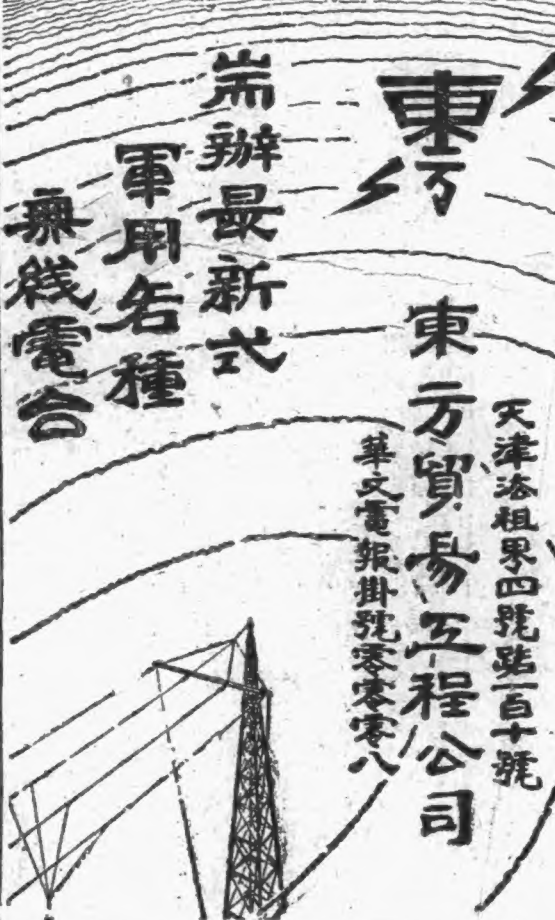 東方
天津法租界四號路一百十號
東方貿易工程公司
華文電報掛號零零零八
耑辦最新式
軍用各種
無綫電台